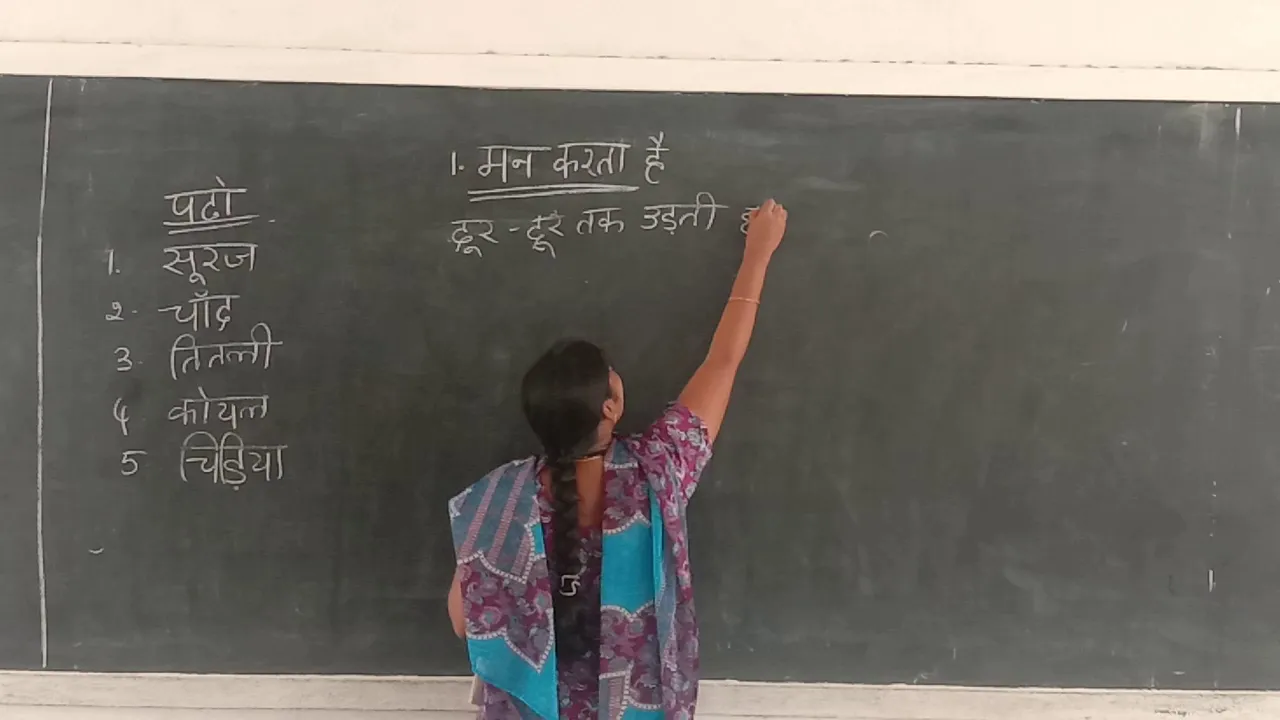 पढो
1. सूरज
2. चाँद
3. तितली
4 कोयल
5 चिड़िया
1. मन करता है
दूर - दूर तक उड़ती